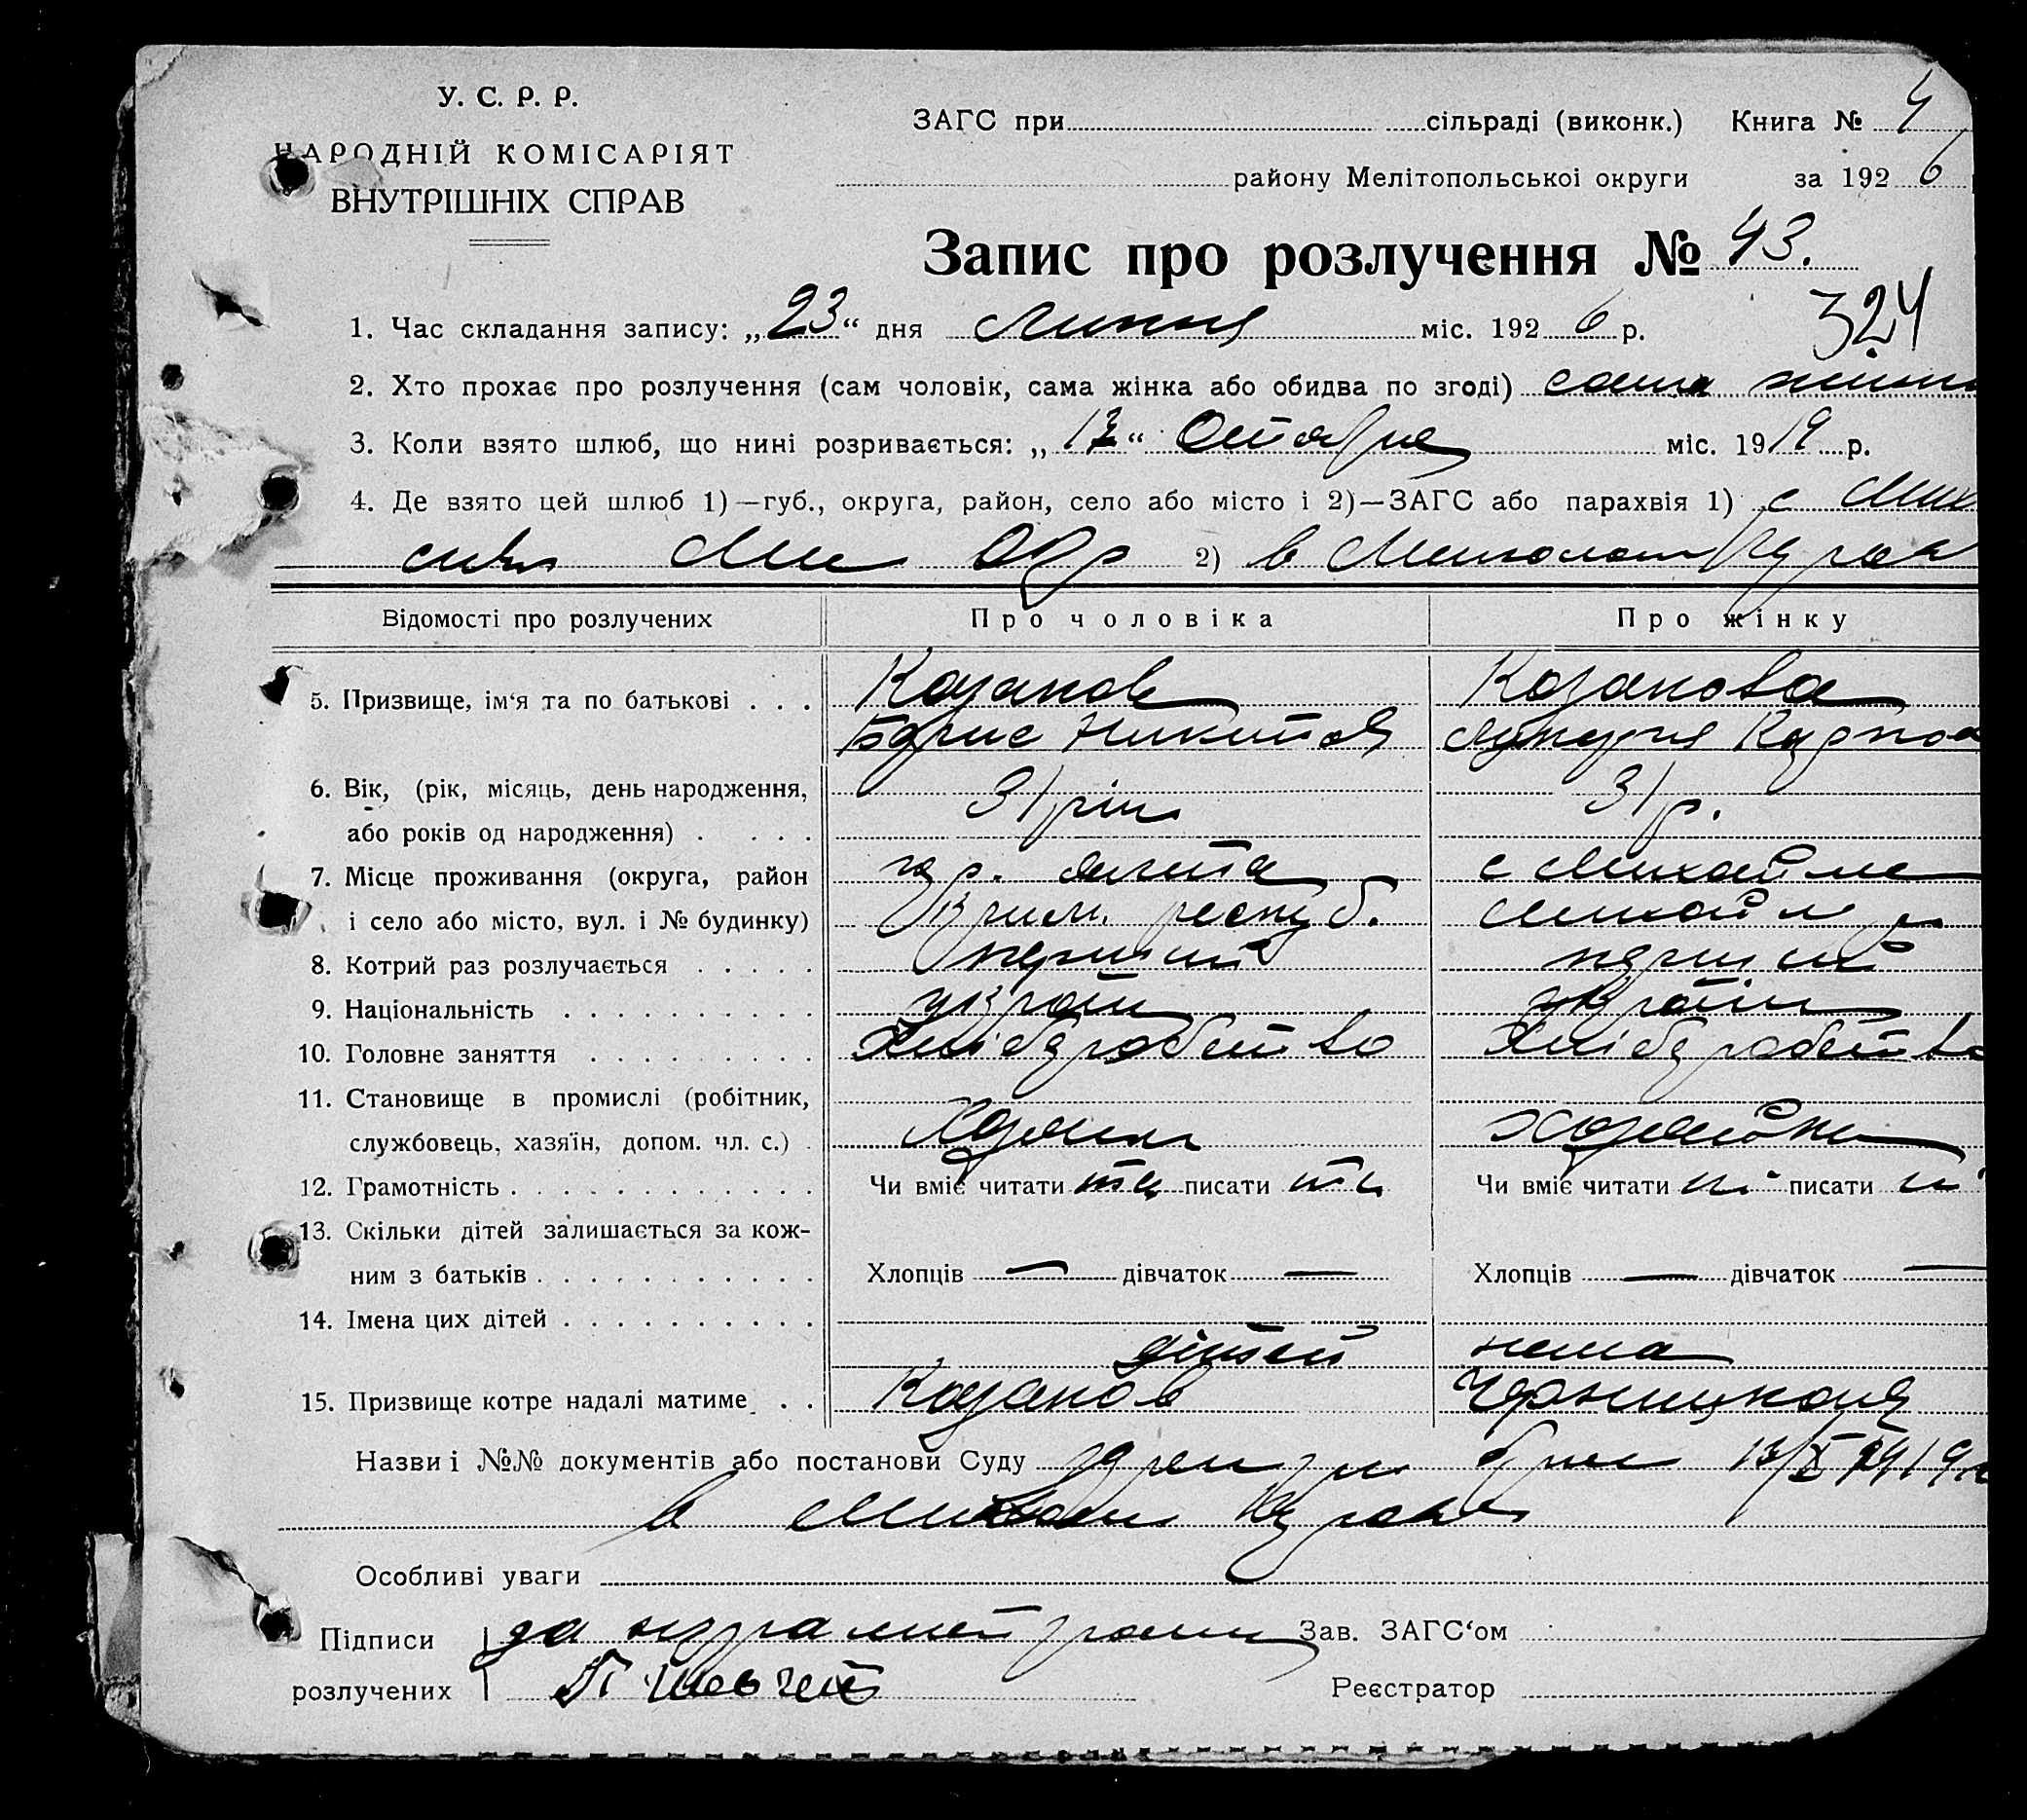 У. С. Р. Р.
НАРОДНІЙ КОМІСАРІЯТ
ВНУТРІШНІХ СПРАВ
ЗАГС при сільраді (виконк.) Книга № 4
району Мелітопольськоі округи за 1926
Запис про розлучення № 43.
324
1. Час складання запису: „23“ дня липня міс. 1926 р.
2. Хто прохає про розлучення (сам чоловік, сама жінка або обидва по згоді) сама
3. Коли взято шлюб, що нині розривається: „13“ Октября міс. 1919 р.
4. Де взято цей шлюб 1)—губ., округа, район, село або місто і 2)—ЗАГС або парахвія 1) с
2) в
Відомості про розлучених Про чоловіка Про жінку
5. Призвище, ім‘я та по батькові . . . Казанов Казанова
Борис Никитов
6. Вік, (рік, місяць, день народження, 31 рік 31 р.
або років од народження) . . . .
7. Місце проживання (округа, район гор. Ялта с
і село або місто, вул. і № будинку) Крим. респуб.
8. Котрий раз розлучається . . . . . перший перший
9. Національність . . . . . . . . . . україн україн
10. Головне заняття . . . . . . . . . Хліборобство Хліборобство
11. Становище в промислі (робітник,
службовець, хазяїн, допом. чл. с.) . Хазяин хазяйка
12. Грамотність . . . . . . . . . . . . Чи вміє читати так писати так Чи вміє читати ні писати ні
13. Скільки дітей залишається за кож-
ним з батьків . . . . . . . . . . . . Хлопців — дівчаток — Хлопців — дівчаток —
14. Імена цих дітей . . . . . . . . . .
дітей нема
15. Призвище котре надалі матиме . . Казанов
Назви і №№ документів або постанови Суду
в
Особливі уваги
Підписи за Зав. ЗАГС‘ом
розлучених Реєстратор